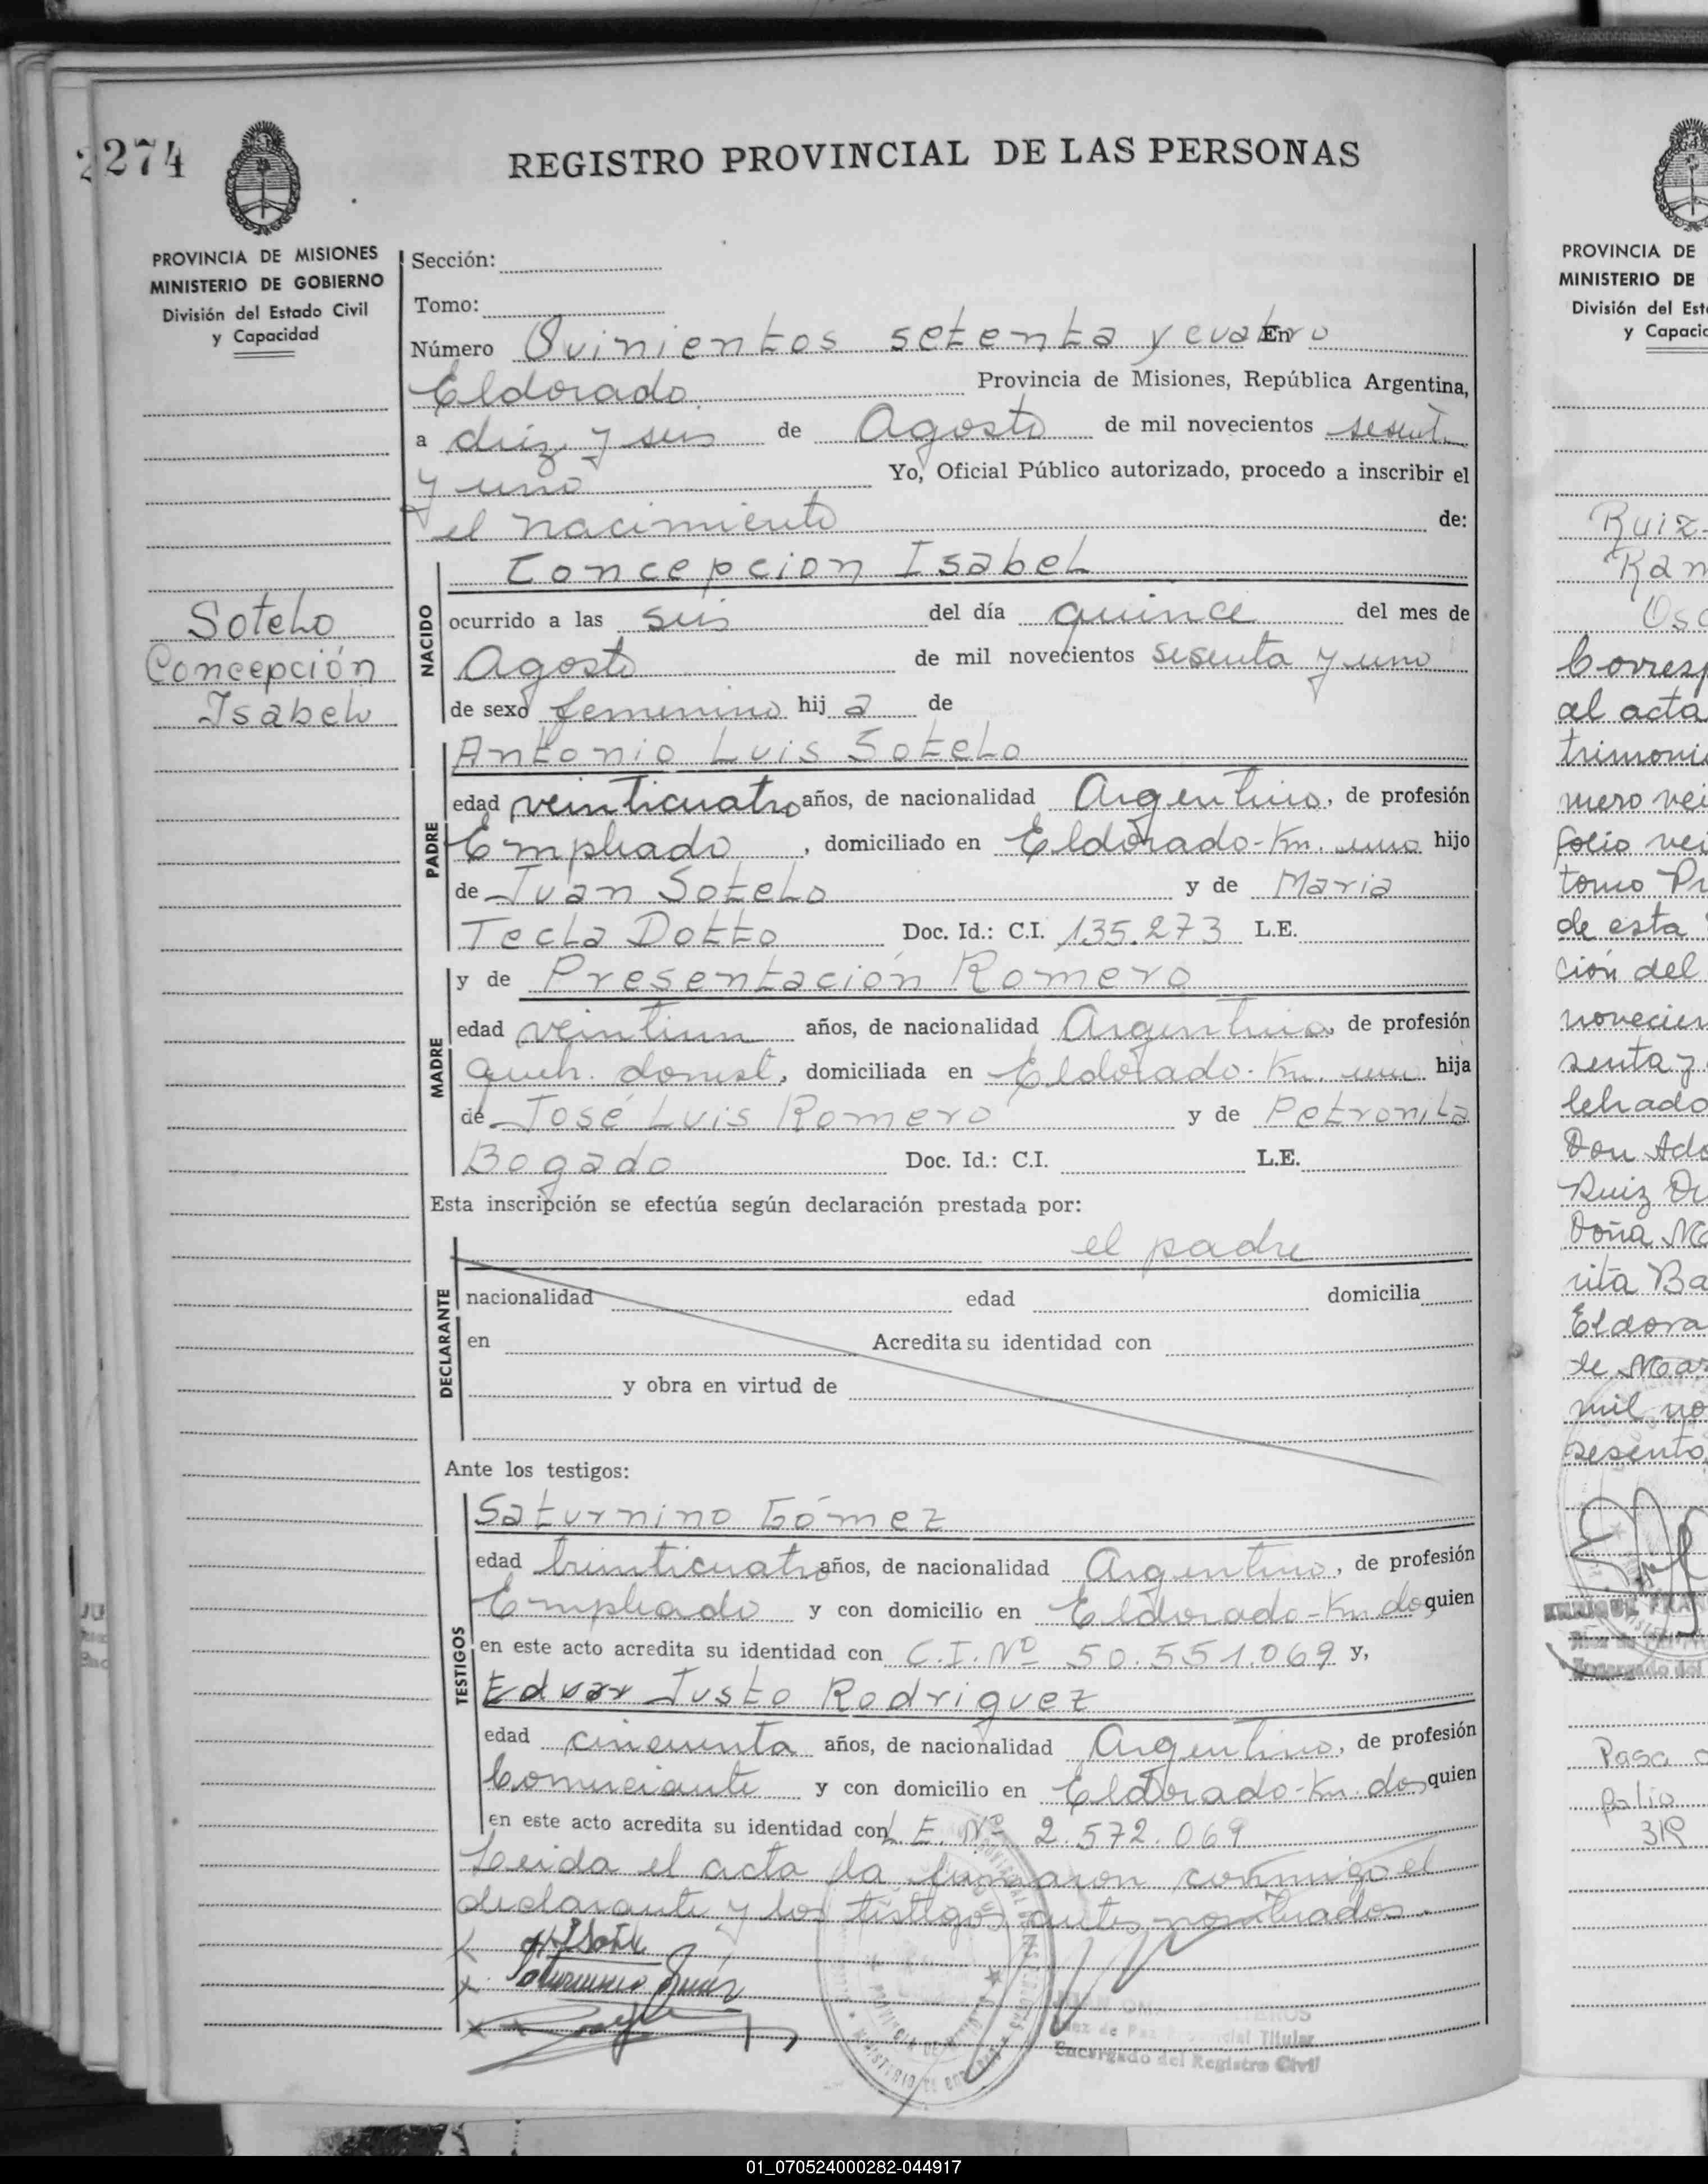 2274
REGISTRO PROVINCIAL DE LAS PERSONAS
PROVINCIA DE MISIONES
MINISTERIO DE GOBIERNO
División del Estado Civil
y Capacidad
Sotelo
Concepción
Isabel
Sección:
Tomo:
Número Quinientos setenta y cuatro En
Eldorado Provincia de Misiones, República Argentina,
a diez y seis de Agosto de mil novecientos sesenta
y uno Yo, Oficial Público autorizado, procedo a inscribir el
el nacimiento de:
NACIDO
Concepcion Isabel
ocurrido a las seis del día quince del mes de
Agosto de mil novecientos sesenta y uno
de sexo femenino hija de
PADRE
Antonio Luis Sotelo
edad veinticuatro años, de nacionalidad Argentino, de profesión
Empleado, domiciliado en Eldorado-Km. uno hijo
de Juan Sotelo y de Maria
Tecla Dotto Doc. Id.: C.I. 135.273 L.E.
MADRE
y de Presentación Romero
edad veintiun años, de nacionalidad Argentina, de profesión
queh. domest., domiciliada en Eldorado-Km. uno hija
de José Luis Romero y de Petronila
Bogado Doc. Id.: C.I. L.E.
Esta inscripción se efectúa según declaración prestada por:
DECLARANTE
el padre
nacionalidad edad domicilia
en Acredita su identidad con
y obra en virtud de
Ante los testigos:
TESTIGOS
Saturnino Gómez
edad treinticuatro años, de nacionalidad Argentino, de profesión
Empleado y con domicilio en Eldorado-Km dos quien
en este acto acredita su identidad con C.I. Nº 50.551.069 y,
Justo Rodriguez
edad cincuenta años, de nacionalidad Argentino, de profesión
Comerciante y con domicilio en Eldorado-Km. dos quien
en este acto acredita su identidad con L.E. Nº 2.572.069
Leida el acta la firmaron conmigo el
declarante y los testigos antes nombrados.
Juez de Paz Provincial Titular
Encargado del Registro Civil
PROVINCIA DE
MINISTERIO DE
División del Est
y Capacid
Ruiz
Ram
Osc
Corresp
al acta
trimonio
mero vei
folio vei
tomo Pr
de esta
ción del
novecien
senta y
lebrado
Don Ado
Ruiz
Doña Ma
rita Ba
Eldora
de Mar
mil no
sesenta
Pasa
folio
319
01_070524000282-044917